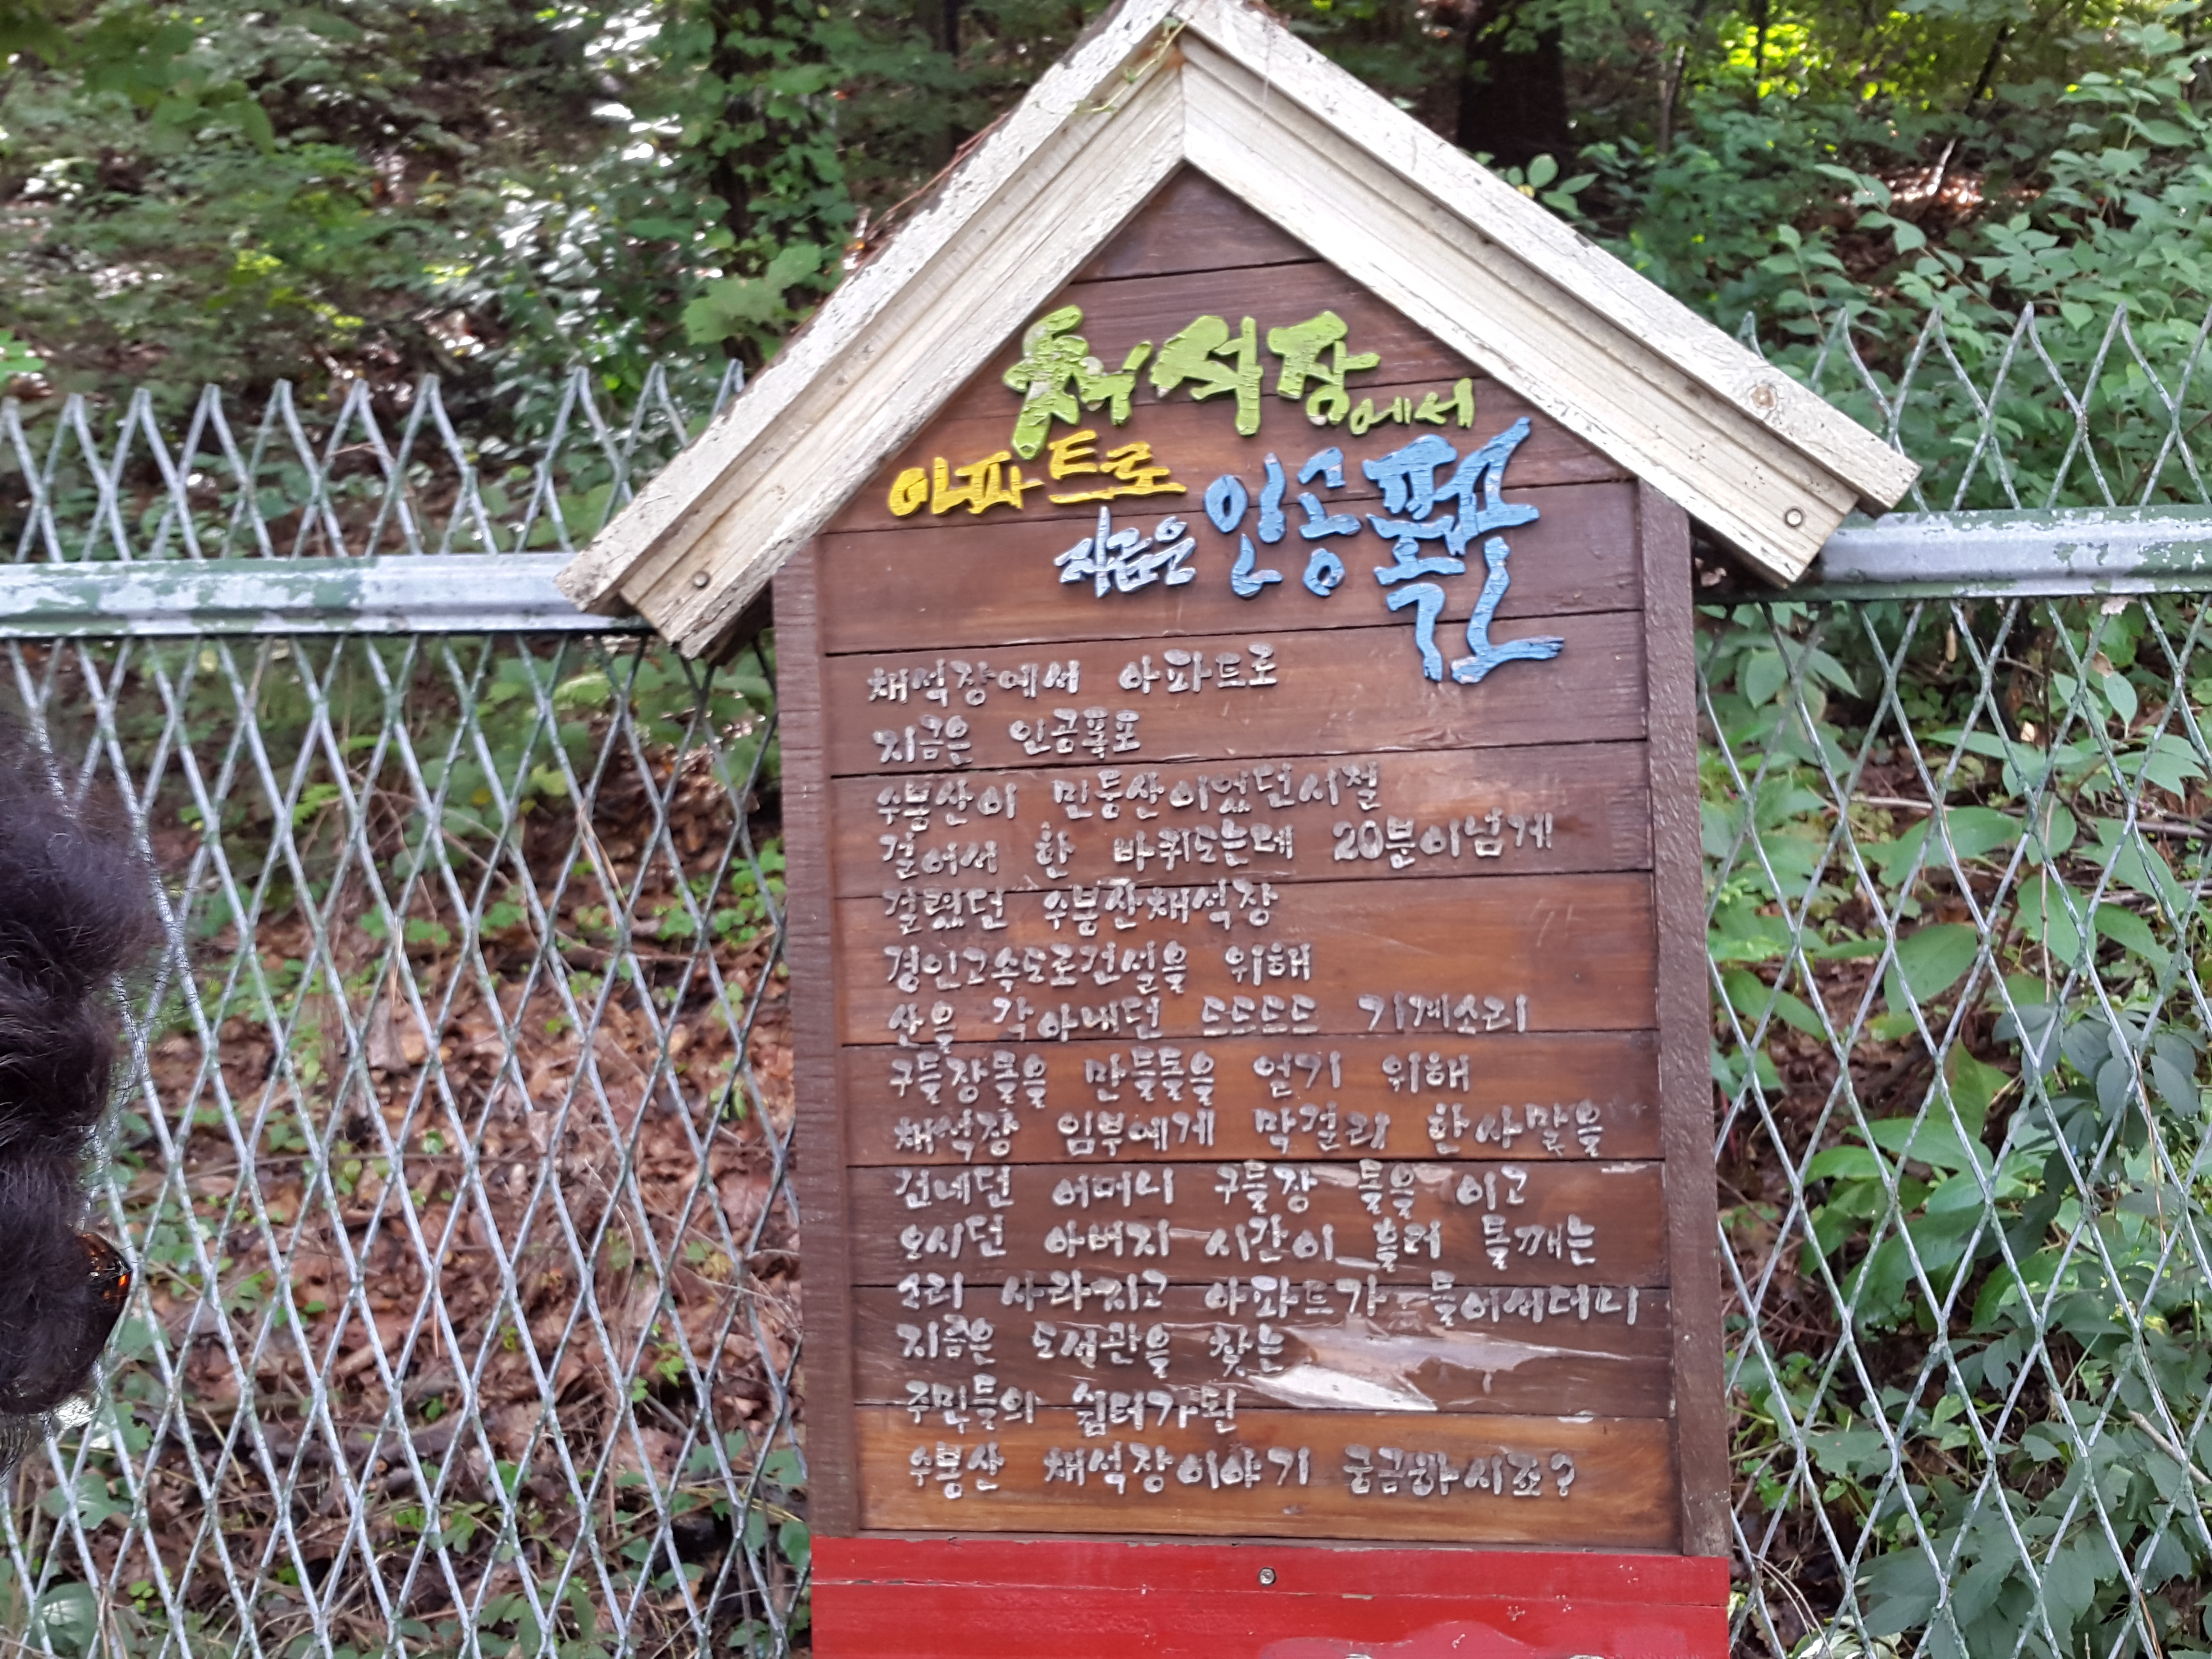 채석장에서
아파트로
지금은 인공폭포
채석장에서 아파트로
지금은 인공폭포
수봉산이 민둥산이었던시절
걸어서 한 바퀴도는데 20분이넘게
걸렸던 수봉산채석장
경인고속도로건설을 위해
산을 깍아내던 드드드드 기계소리
구들장돌을 만들돌을 얻기 위해
채석장 임부에게 막걸리 한사발을
건네던 어머니 구들장 돌을 이고
오시던 아버지 시간이 흘러 돌깨는
소리 사라지고 아파트가 들어서더니
지금은 도서관을 찾는
주민들의 쉼터가된
수봉산 채석장이야기 궁금하시죠?